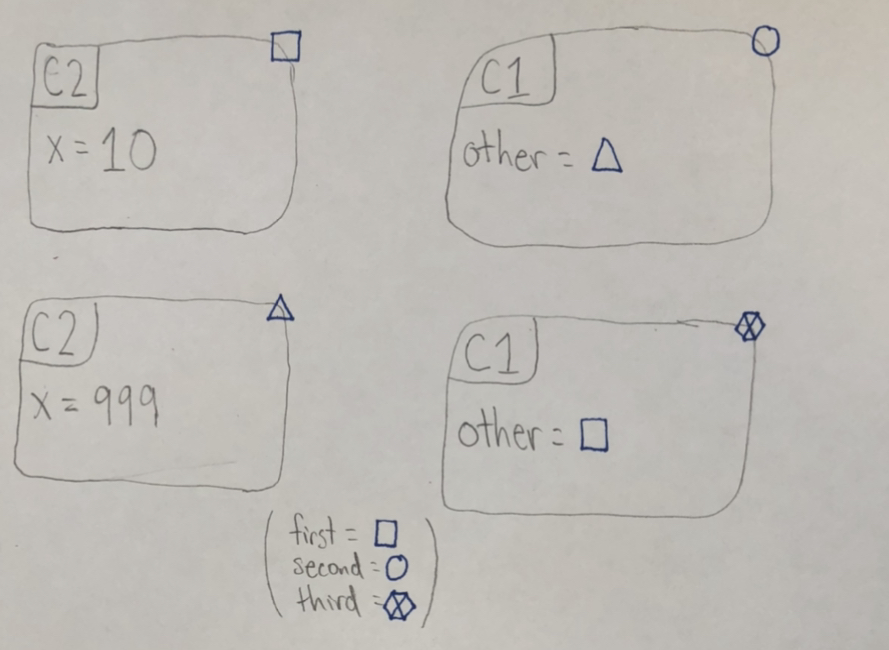 C2
x = 10
C1
other = △
C2
x = 999
C1
other = □
first = □
second = ○
third = ⬡